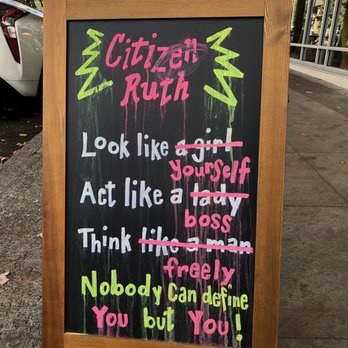 Citizen
Ruth
Look like a girl
yourself
Act like a lady
boss
Think like a man
freely
Nobody Can define
You but You!